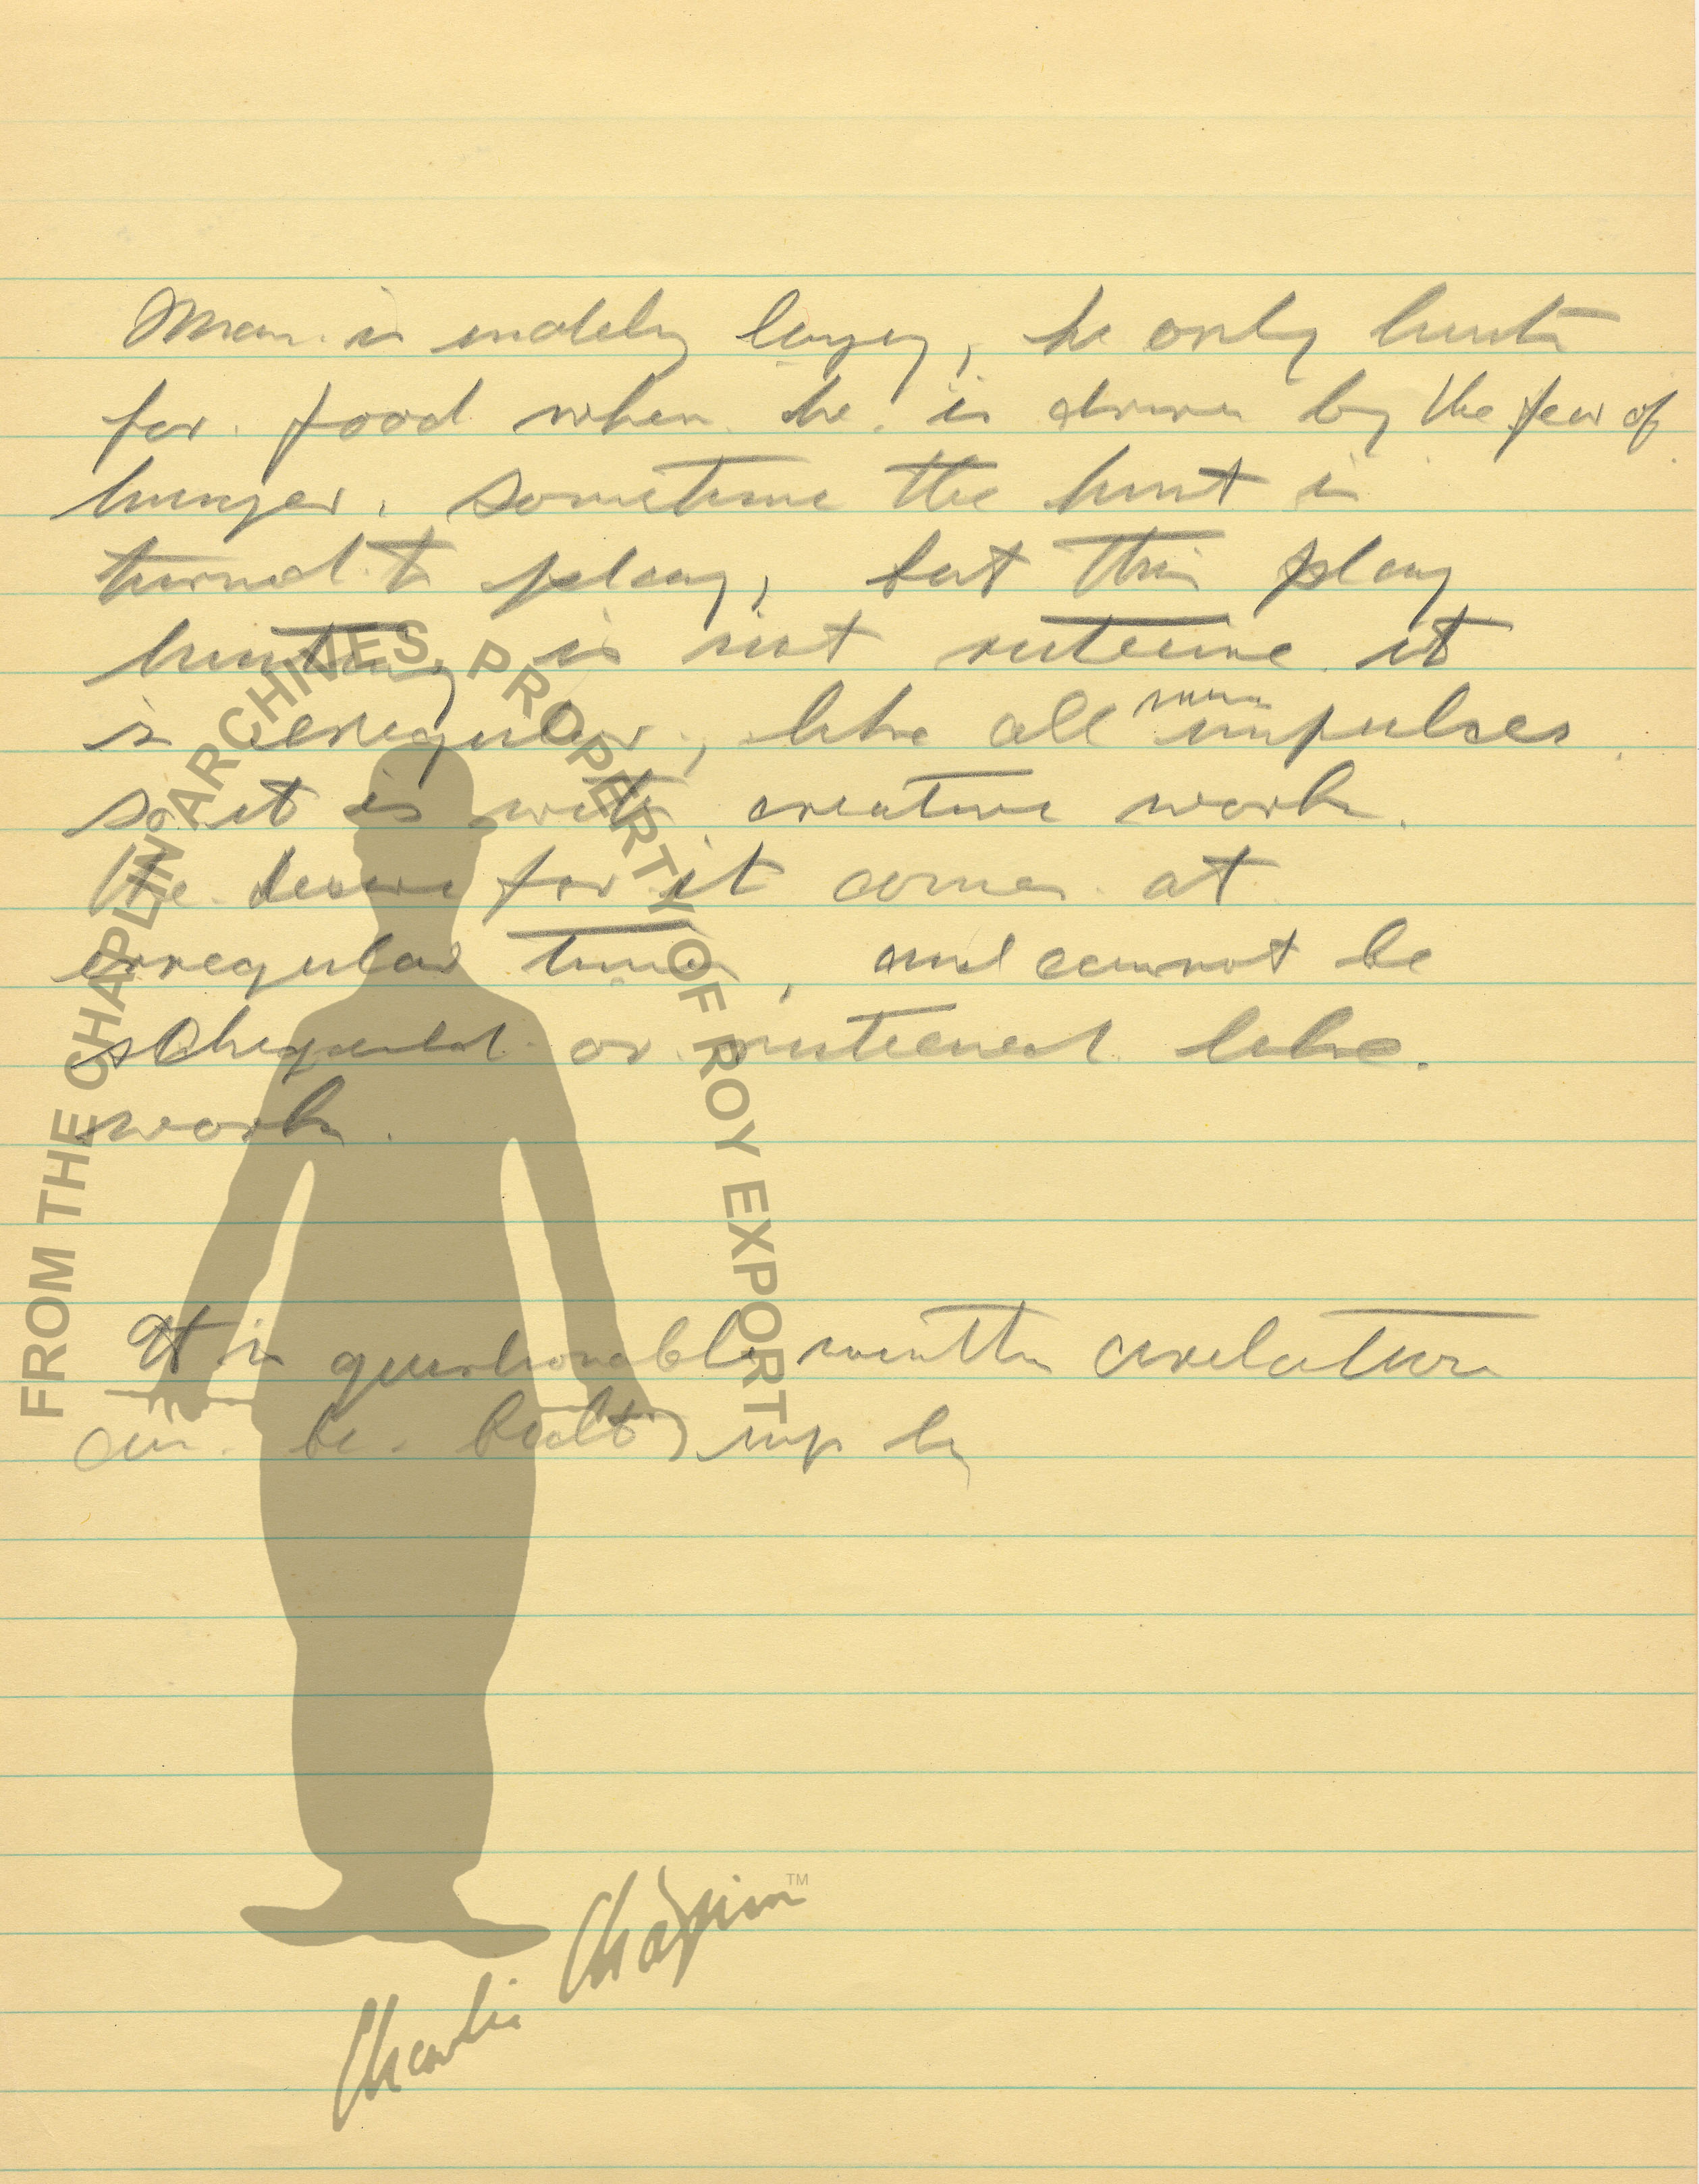 Man is inately lazy, he only hunts
for food when he is driven by the fear of
hunger. Sometime the hunt is
turned to play, but this play
hunting is not ruteine it
is erregular, like all impulses
so it is with creative work.
The desire for it comes at
erregular times, and cannot be
or ruteened like.
work.
It is questionable
can be built up by
FROM THE CHAPLIN ARCHIVES, PROPERTY OF ROY EXPORT
Charlie Chaplin TM